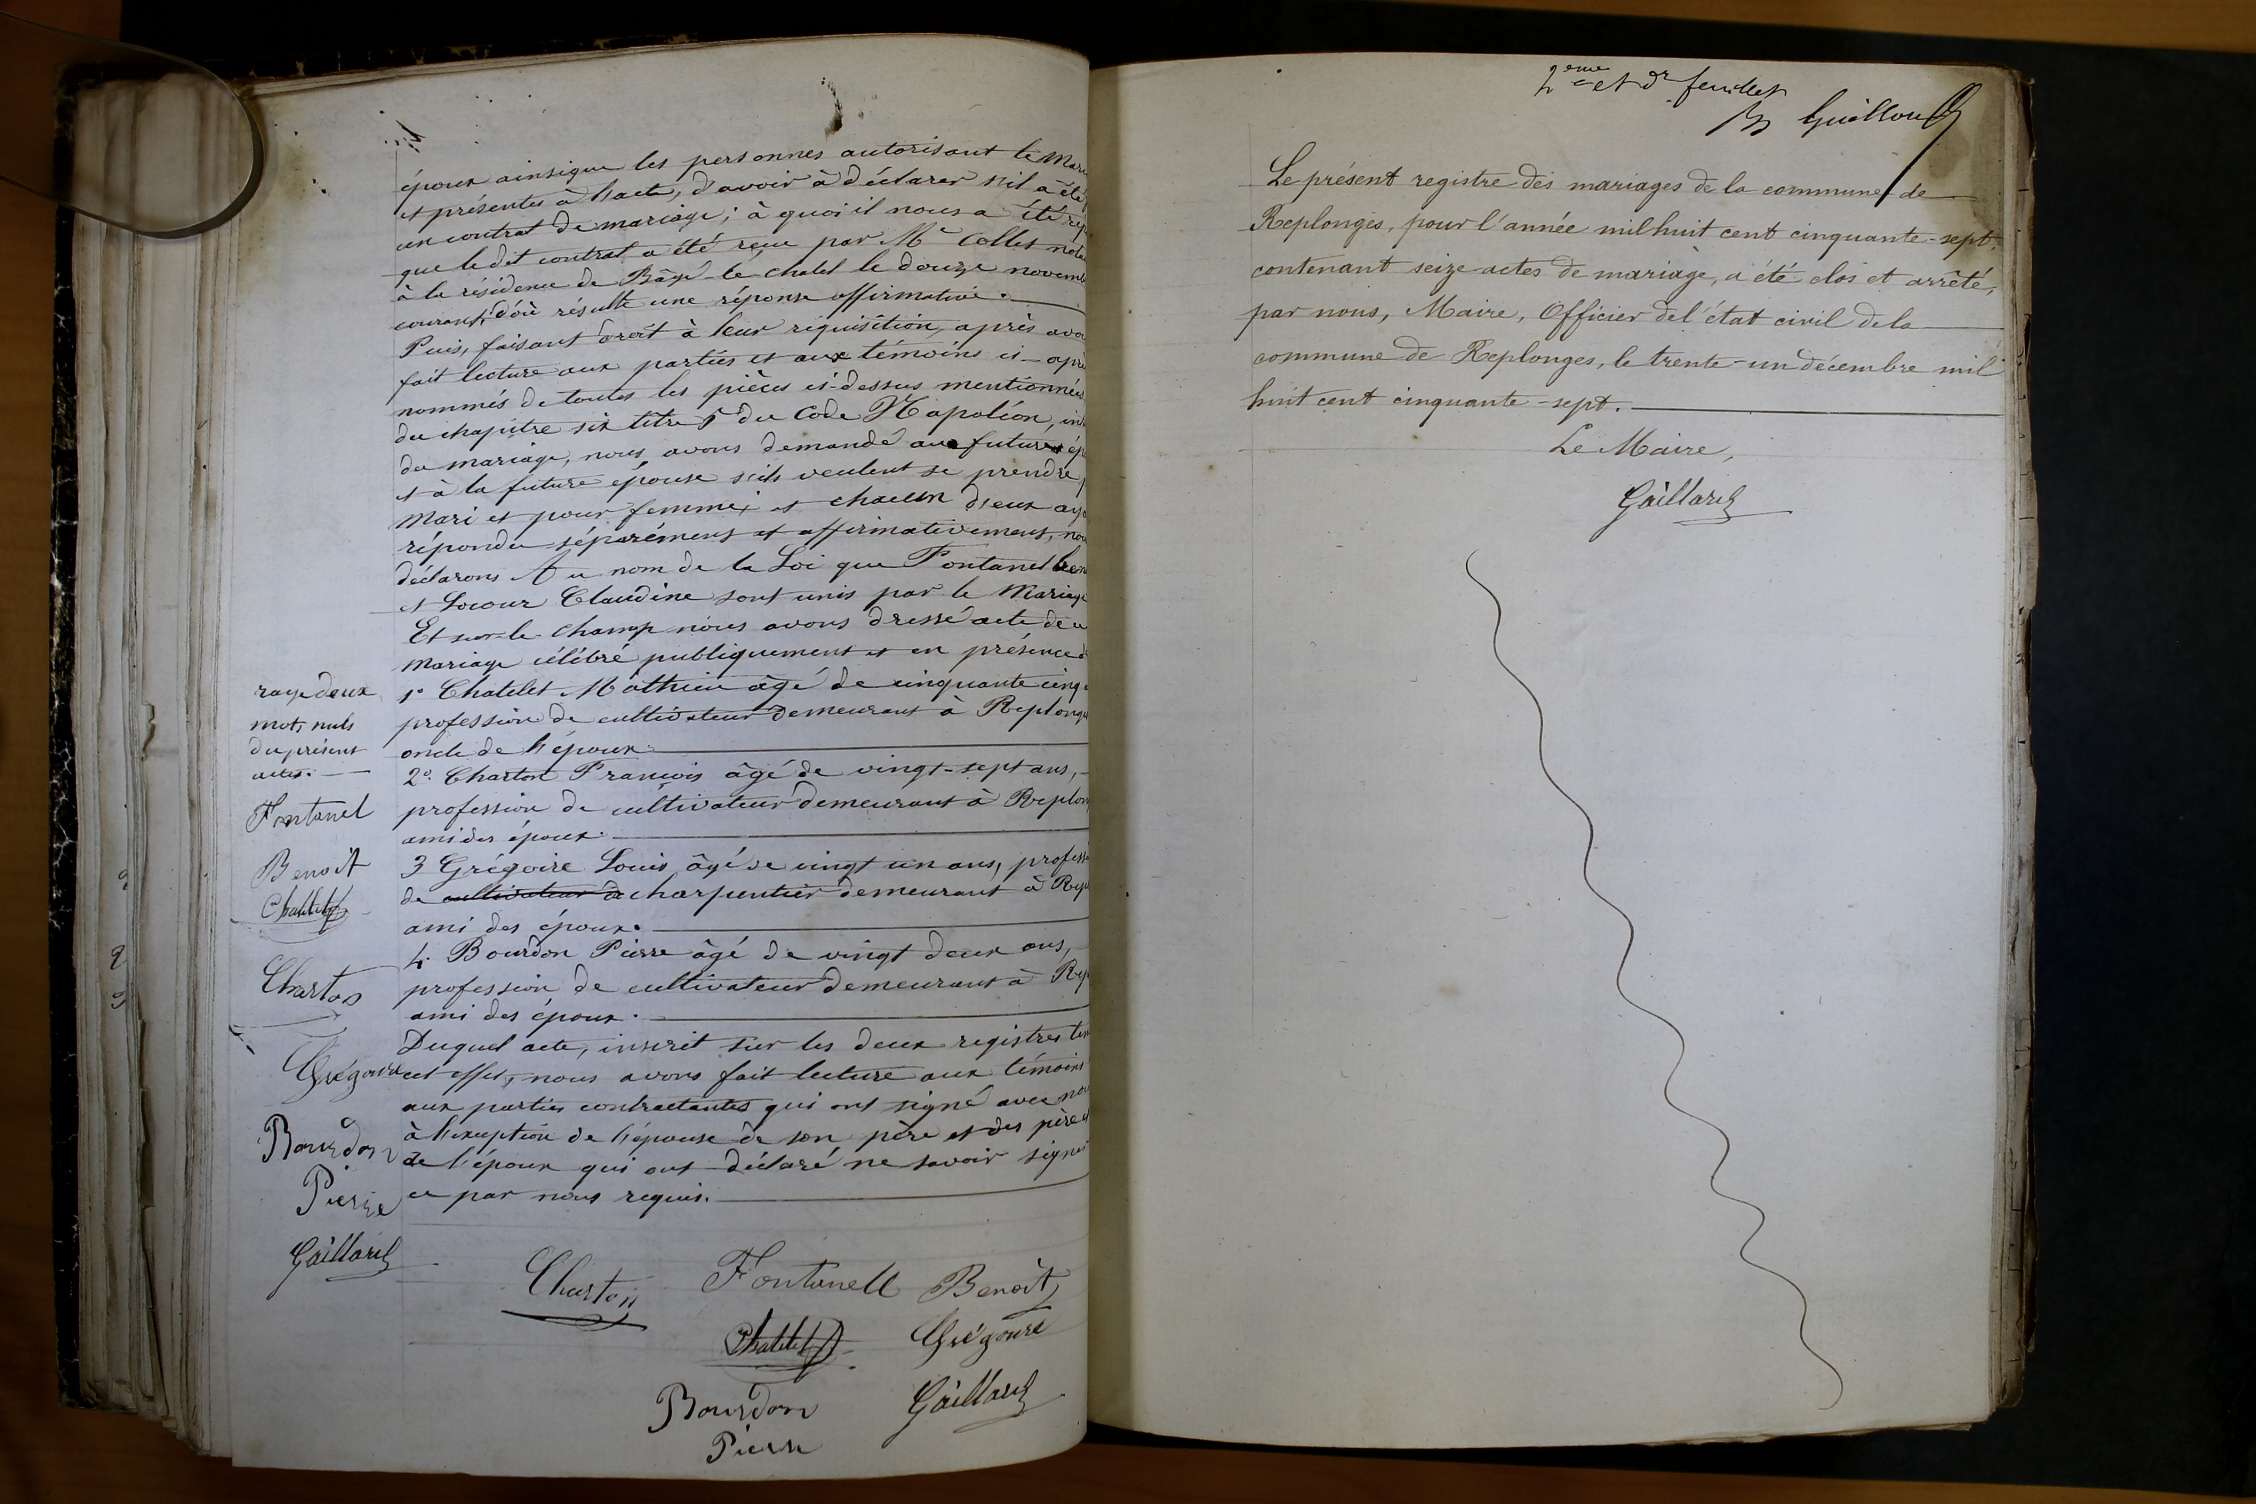 époux ainsi que les personnes autorisant le Mari
et présentes à l'acte, d'avoir à déclarer s'il a été
un contrat de mariage; à quoi il nous a été rep
que le dit contrat a été reçu par Me Collet nota
à la résidence de Bâgé-le-chatel le douze novemb
courant, d'où résulte une réponse affirmative.
Puis, faisant droit à leur réquisition, après avo
fait lecture aux parties et aux témoins ci-apr
nommés de toutes les pièces ci-dessus mentionnées
du chapitre six titre 5 du Code Napoléon, int
du mariage, nous avons demandé au futur ép
et à la future épouse s'ils veulent se prendre p
Mari et pour femme; et chacun d'eux aya
répondu séparément et affirmativement, nou
déclarons Au nom de la Loi que Fontanel Ben
et Locour Claudine sont unis par le Mariage
Et sur-le-champ nous avons dressé acte de ce
Mariage célébré publiquement et en présence d
1° Chatelet Mathieu âgé de cinquante cinq
profession de cultivateur demeurant à Replong
oncle de l'époux.
2° Charton François âgé de vingt-sept ans,
profession de cultivateur demeurant à Replon
ami des époux.
3 Grégoire Louis âgé de vingt un ans, profess
de cultivateur de charpentier demeurant à Rep
ami des époux.
4. Bourdon Pierre âgé de vingt deux ans,
profession de cultivateur demeurant à Rep
ami des époux.
Duquel acte, inscrit sur les deux registres ten
cet effet, nous avons fait lecture aux témoins
aux parties contractantes qui ont signé avec nou
à l'exception de l'épouse de son père et des père et
de l'époux qui ont déclaré ne savoir signer
ce par nous requis.
rayé deux
mots nuls
du présent
acte.
Fontanel
Benoit
Chatelet
Charton
Grégoire
Bourdon
Pierre
Gaillard
Charton Fontanell Benoît
Chatelet Grégoire
Bourdon Gaillard
Pierre
2eme et dr feuillet
Guillou
Le présent registre des mariages de la commune de
Replonges, pour l'année mil huit cent cinquante-sept
contenant seize actes de mariage, a été clos et arrêté,
par nous, Maire, Officier de l'état civil de la
commune de Replonges, le trente-un décembre mil
huit cent cinquante-sept.
Le Maire,
Gaillard